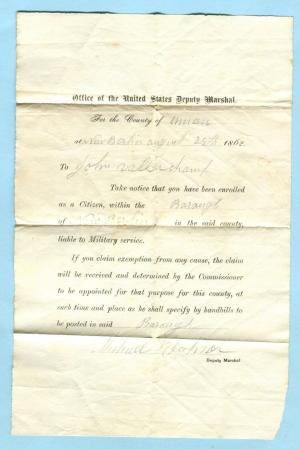 Office of the United States Deputy Marshal.
For the County of Union
at New Berlin august 25th 1862
To John
Take notice that you have been enrolled
as a Citizen, within the Barough
of New Berlin in the said county,
liable to Military service.
If you claim exemption from any cause, the claim
will be received and determined by the Commissioner
to be appointed for that purpose for this county, at
such time and place as he shall specify by handbills to
be posted in said Barough
Michael
Deputy Marshal